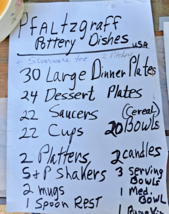 Pfaltzgraff
Pottery Dishes
USA
30 Large Dinner Plates
24 Dessert Plates
22 Saucers (Cereal)
22 Cups 20 Bowls
2 Platters, 2 candles
S+P Shakers 3 Serving Bowls
2 mugs 1 Med. Bowl
1 Spoon Rest 1